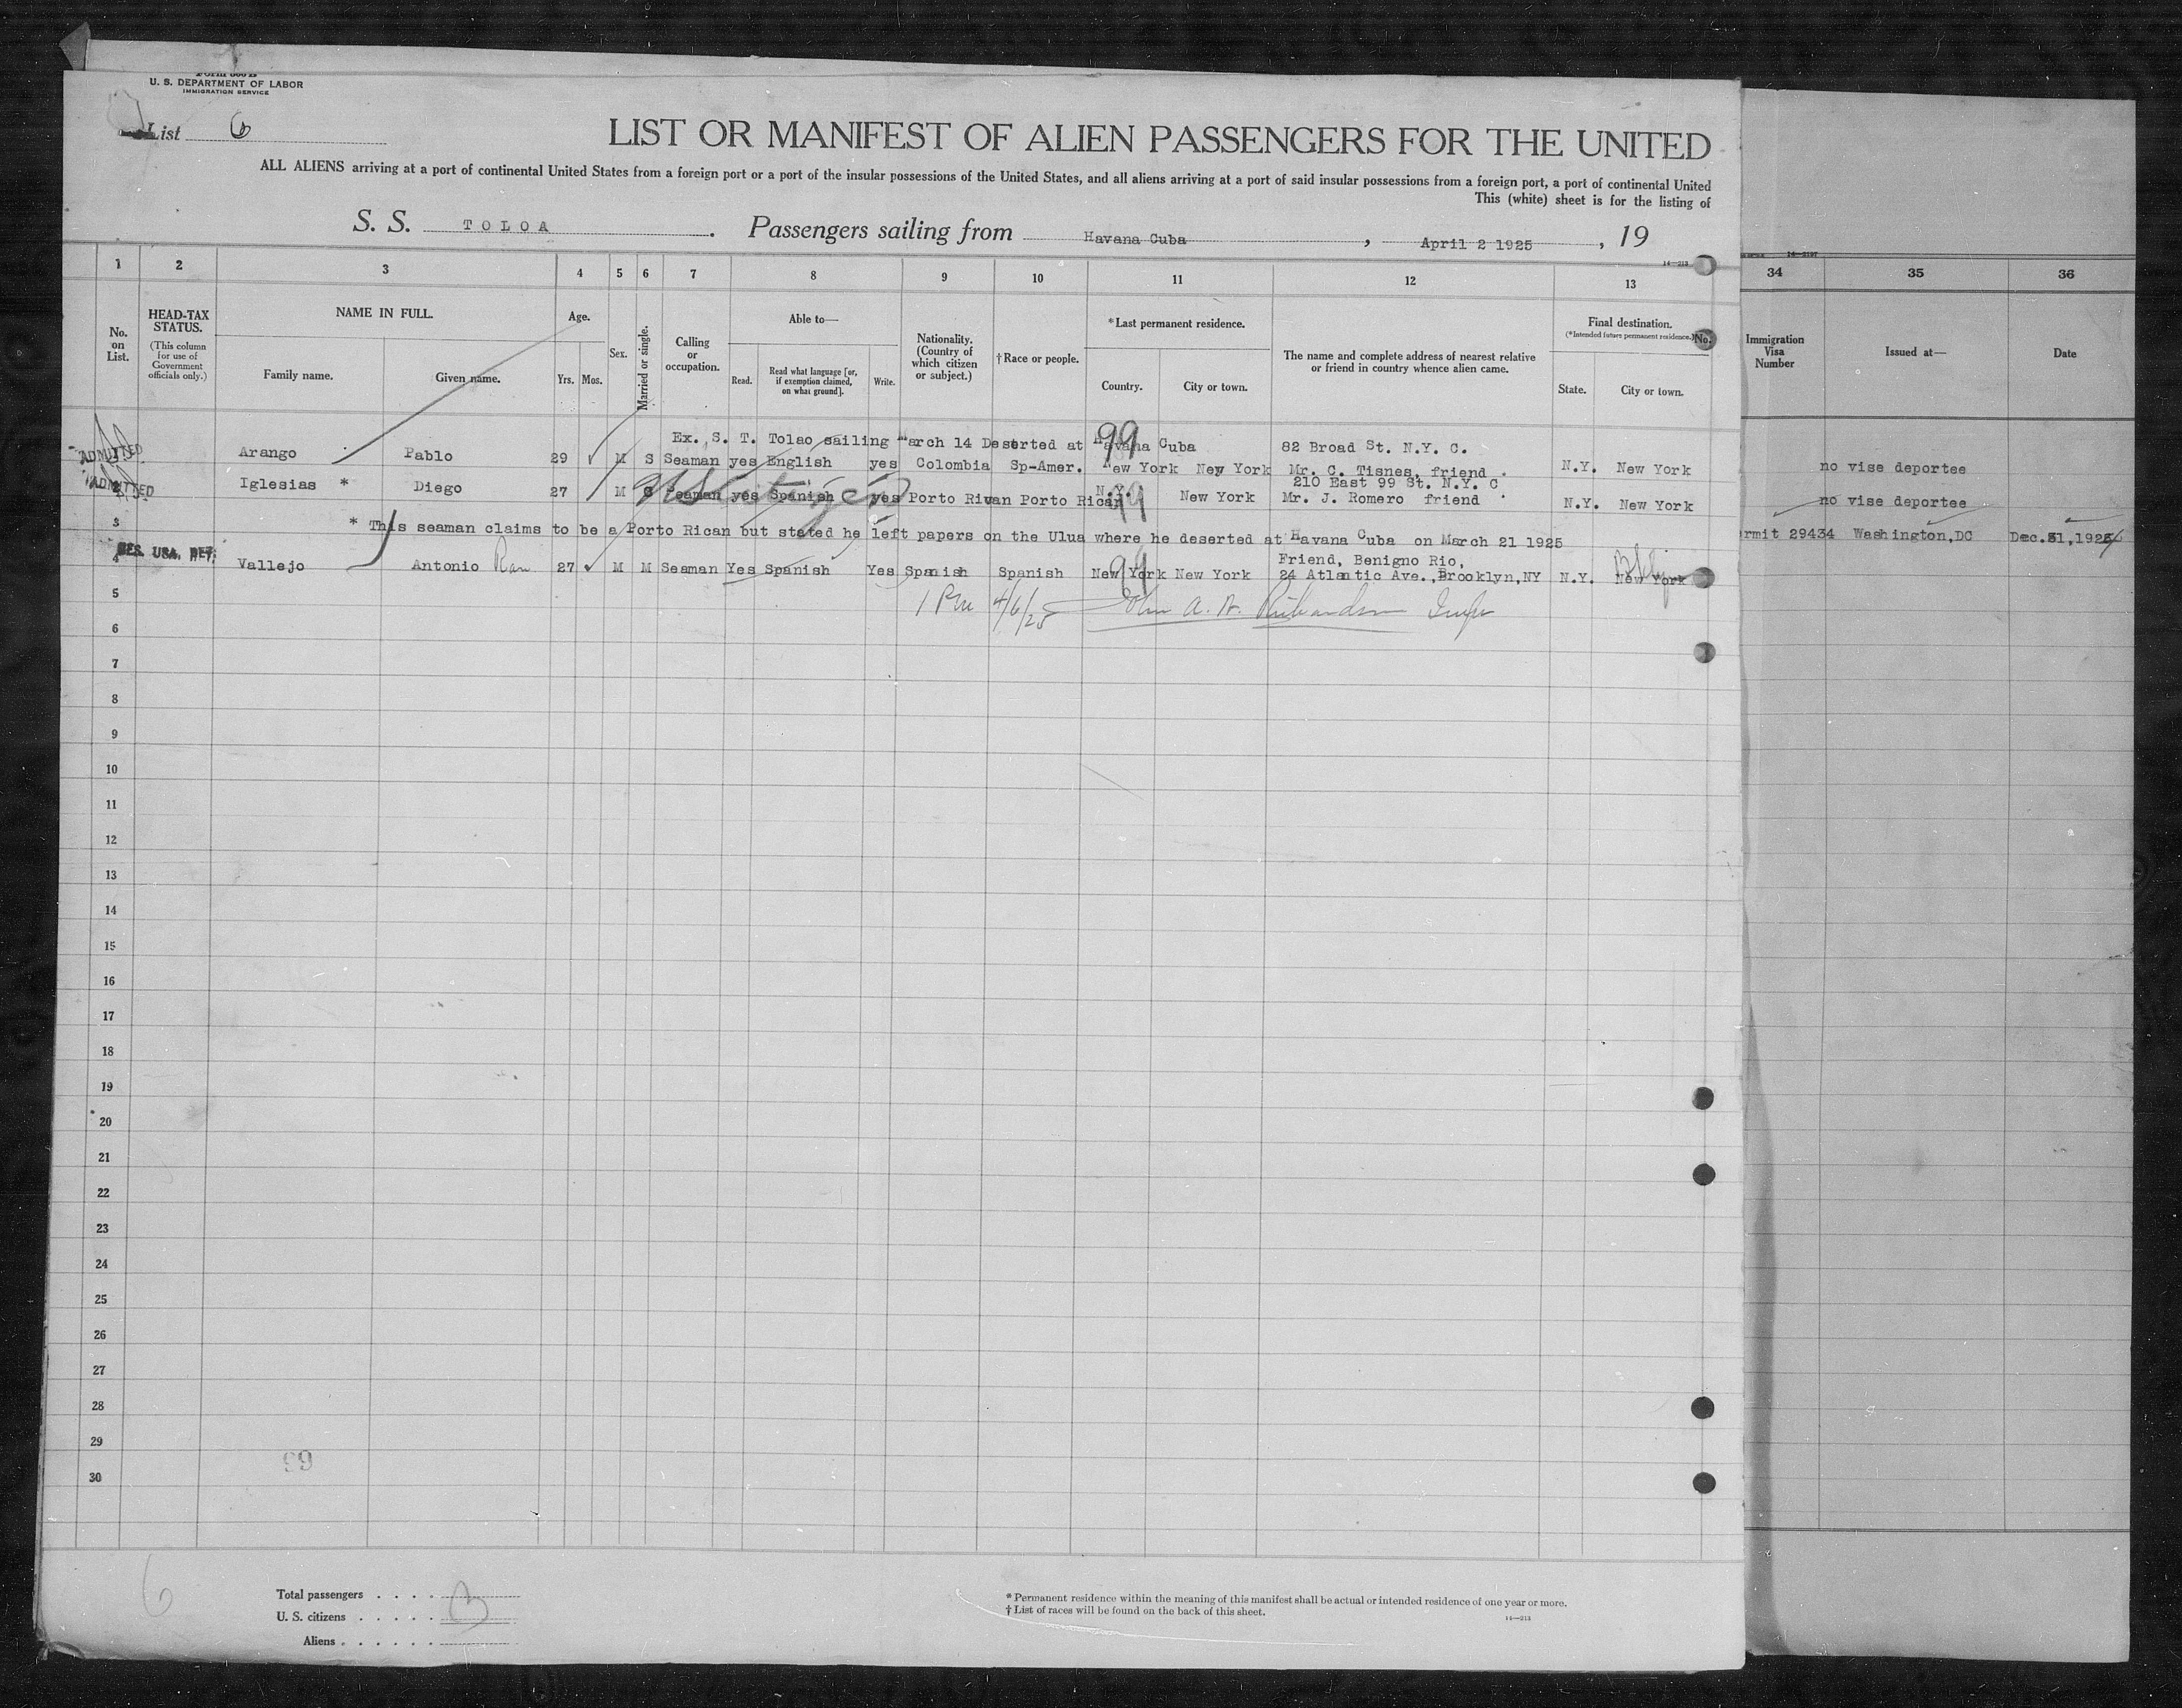 Form 500 B
U. S. DEPARTMENT OF LABOR
IMMIGRATION SERVICE
List 6
LIST OR MANIFEST OF ALIEN PASSENGERS FOR THE UNITED
ALL ALIENS arriving at a port of continental United States from a foreign port or a port of the insular possessions of the United States, and all aliens arriving at a port of said insular possessions from a foreign port, a port of continental United
This (white) sheet is for the listing of
S. S. TOLOA. Passengers sailing from Havana Cuba, April 2 1925, 19
14—213
1 2 3 4 5 6 7 8 9 10 11 12 13 34 35 36
No. on List.
HEAD-TAX STATUS.
(This column for use of Government officials only.)
NAME IN FULL.
Family name. Given name.
Age.
Yrs. Mos.
Sex.
Married or single.
Calling or occupation.
Able to—
Read. Read what language [or, if exemption claimed, on what ground]. Write.
Nationality. (Country of which citizen or subject.)
†Race or people.
*Last permanent residence.
Country. City or town.
The name and complete address of nearest relative or friend in country whence alien came.
Final destination.
(*Intended future permanent residence.)
State. City or town.
No.
Immigration Visa Number
Issued at—
Date
Ex. S. T. Tolao sailing March 14 Deserted at Havana Cuba 82 Broad St. N.Y. C.
99
ADMITTED Arango Pablo 29 M S Seaman yes English yes Colombia Sp-Amer. New York New York Mr. C. Tisnes, friend . N.Y. New York no vise deportee
210 East 99 St. N.Y. C
ADMITTED 2 Iglesias * Diego 27 M S Seaman yes Spanish yes Porto Rivan Porto Rican N.Y. New York Mr. J. Romero friend N.Y. New York no vise deportee
US Citizen
99
3 * This seaman claims to be a Porto Rican but stated he left papers on the Ulua where he deserted at Havana Cuba on March 21 1925 rmit 29434 Washington,DC Dec.31,1924
RES. USA. RET.
Friend, Benigno Rio,
4 Vallejo Antonio 27 M M Seaman Yes Spanish Yes Spanish Spanish New York New York 24 Atlantic Ave.,Brooklyn,NY N.Y. New York
99
Bklyn
5 1 PM 4/6/25 John A. W. Richardson Insp
6
7
8
9
10
11
12
13
14
15
16
17
18
19
20
21
22
23
24
25
26
27
28
29
30
6
Total passengers . . . . 3
U. S. citizens . . . . .
Aliens . . . . . .
* Permanent residence within the meaning of this manifest shall be actual or intended residence of one year or more.
† List of races will be found on the back of this sheet.
14—213